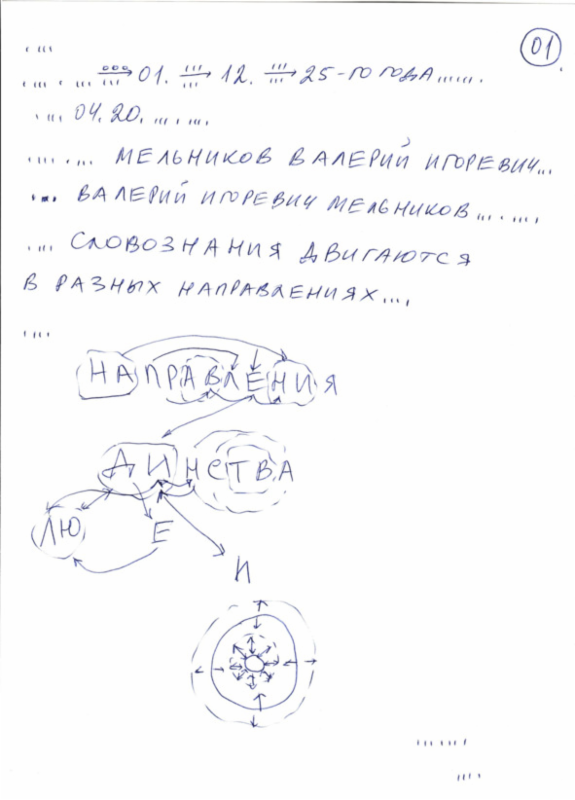 01.
.... 
.... . ... 01. 12. 25-ГО ГОДА......
.... 04.20. ... . ....
.... . ... МЕЛЬНИКОВ ВАЛЕРИЙ ИГОРЕВИЧ...
... ВАЛЕРИЙ ИГОРЕВИЧ МЕЛЬНИКОВ.... . ....
.... СЛОВОЗНАНИЯ ДВИГАЮТСЯ
В РАЗНЫХ НАПРАВЛЕНИЯХ....
....
НАПРАВЛЕНИЯ
ДИНСТВА
ЛЮ Е
И